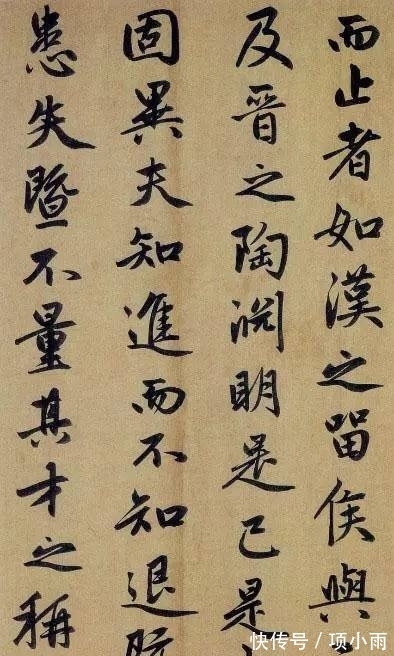 而止者如漢之留侯與
及晉之陶淵明是已是
固異夫知進而不知退
患失暨不量其才之稱
快传号 / 项小雨